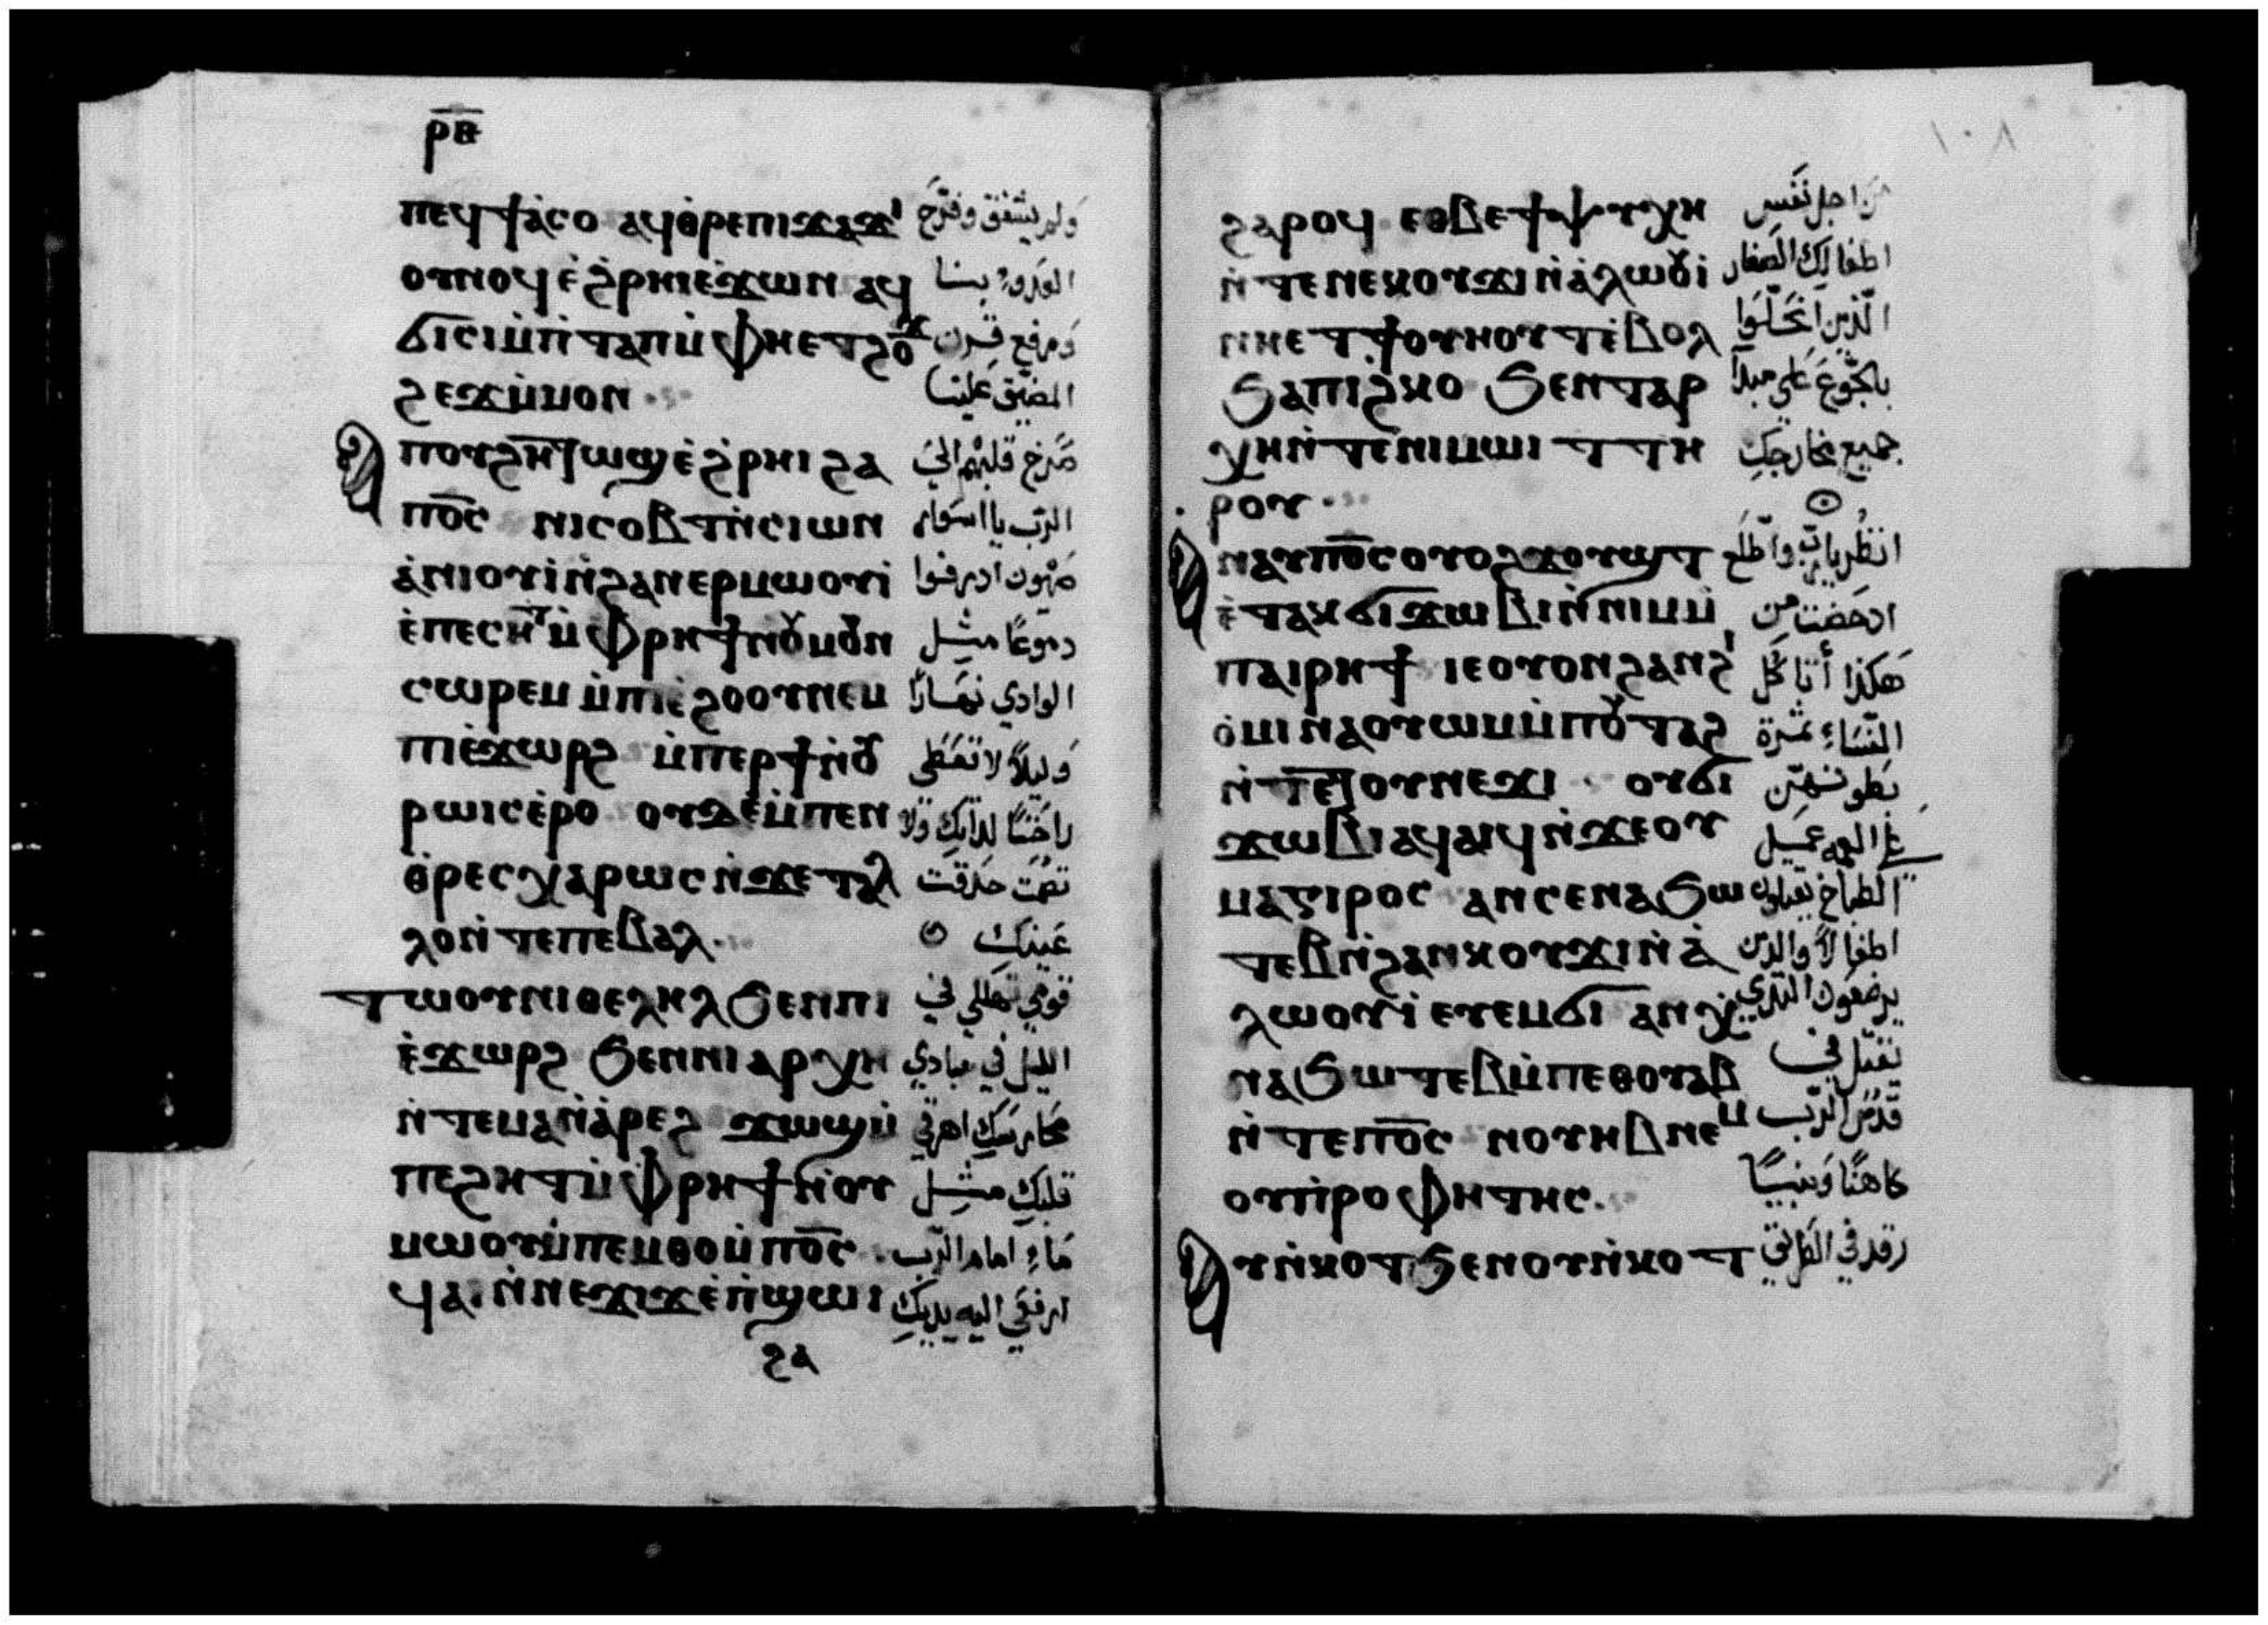 ⲣⲃ
ⲡⲉϥϯⲁ̀ⲥⲟ ⲁϥⲑ̀ⲣⲉⲡⲓϫⲁϫⲓ ولم يشفق وفرّح
ⲟⲩⲛⲟϥ ⲉ̀ϩ̀ⲣⲏⲓⲉ̀ϫⲱⲛ ⲁϥ العدو بنا
ϭⲓⲥⲓⲙ̀ⲡ̀ⲧⲁⲡⲙ̀ⲫⲏⲉⲧϩⲟϫ ورفع قرن
ϩⲉϫⲙ̀ⲙⲟⲛ المضيّق علينا
ⲁⲡⲟⲩϩⲏⲧⲱϣ ⲉ̀ϩ̀ⲣⲏⲓ ϩⲁ صرخ قلبهم الي
ⲡⲟ̅ⲥ̅ ⲛⲓⲥⲟⲃⲧⲛ̀ⲥⲓⲱⲛ الرب يا اسوار
ⲁ̀ⲛⲓⲟⲩⲓ̀ⲛ̀ϩⲁⲛⲉⲣⲙⲱⲟⲩⲓ̀ صهيون اذرفوا
ⲉ̀ⲡⲉⲥⲏⲧⲙ̀ⲫⲣⲏϯⲛ̀ⲟⲩⲙⲟⲩⲛ دموعًا مثل
ⲥⲱⲣⲉⲙ ⲙ̀ⲡⲓⲉ̀ϩⲟⲟⲩⲛⲉⲙ الوادي نهارًا
ⲡⲓⲉ̀ϫⲱⲣϩ ⲙ̀ⲡⲉⲣϯⲛ̀ⲟⲩ وليلاً لا تعطى
ⲣⲱⲓⲥⲉ̀ⲣⲟ ⲟⲩⲇⲉⲙ̀ⲡⲉⲛ راحتًا لذاتك ولا
ⲑ̀ⲣⲉⲥⲭⲁⲣⲱⲥⲛ̀ϫⲉⲧⲁⲗ تصمت حدقت
ⲗⲟⲛ̀ⲧⲉⲡⲉⲃⲁⲗ عينك
ⲧⲱⲟⲩⲛⲓⲑⲉⲗⲏⲗϧⲉⲛⲡⲓ قومي تهللي في
ⲉ̀ϫⲱⲣϩ ϧⲉⲛⲛⲓⲁⲣⲭⲏ الليل في مبادي
ⲛ̀ⲧⲉⲙⲁⲛ̀ⲁ̀ⲣⲉϩ ϫⲱϣⲙ̀ محارسك اهرقي
ⲡⲉϩⲏⲧⲙ̀ⲫⲣⲏϯⲛ̀ⲟⲩ قلبك مثل
ⲙⲱⲟⲩⲙ̀ⲡⲉⲙⲑⲟⲙ̀ⲡⲟ̅ⲥ̅ ماء امام الرب
ϥⲁⲓⲛ̀ⲛⲉϫⲓϫⲉ̀ⲡ̀ϣⲱⲓ ارفعي اليه يديك
ϩⲁ
١٠٨
ϩⲁⲣⲟϥ ⲉⲑⲃⲉϯⲯⲩⲭⲏ من اجل نفس
ⲛ̀ⲧⲉⲛⲉⲕⲟⲩϫⲓⲛ̀ⲁ̀ⲗⲱⲟⲩⲓ̀ اطفالك الصغار
ⲛⲏⲉⲧϯⲟⲩⲏⲟⲩⲧⲉ̀ⲃⲟⲗ الذين انحلّوا
ϧⲁⲡⲓϩ̀ⲕⲟ ϧⲉⲛⲧⲁⲣ بالجوع على مبدا
ⲭⲏⲛ̀ⲧⲉⲛⲓⲙⲱⲓⲧ ⲧⲏ جميع مخارجك
ⲣⲟⲩ
ⲁⲛⲁⲩⲡⲟ̅ⲥ̅ⲟⲩⲟϩϫⲟⲩϣⲧ انظر يا رب واطّلع
ⲉ̀ⲧⲁⲕϭⲓϫⲱⲃⲓⲛ̀ⲛⲓⲙⲙ̀ ادحضت من
ⲡⲁⲓⲣⲏϯ ⲓⲉⲟⲩⲟⲛϩⲁⲛϩⲓ هكذا أتاكل
ⲟ̀ⲙⲓⲛⲁⲟⲩⲱⲙⲙ̀ⲡⲟⲩⲧⲁϩ النساء ثمرة
ⲛ̀ⲧⲉⲧⲟⲩⲛⲉϫⲓ ⲟⲩϭⲓ بطونهنّ
ϫⲱⲃⲓⲁϥⲁⲓϥⲛ̀ϫⲉⲟⲩ عمل
ⲙⲁⲅⲓⲣⲟⲥ ⲁⲛⲥⲉⲛⲁϧⲱ الطباخ
ⲧⲉⲃⲛ̀ϩⲁⲛⲕⲟⲩϫⲓⲛ̀ⲁ̀ اطفالاً والذين
ⲗⲱⲟⲩⲓ̀ ⲉⲧⲉⲙϭⲓ ⲁⲛⲭ يرضعون الثدي
ⲛⲁϧⲱⲧⲉⲃⲙ̀ⲡⲉⲑⲟⲩⲁⲃ تقتل في
ⲛ̀ⲧⲉⲡⲟ̅ⲥ̅ ⲛⲟⲩⲏⲃⲛⲉⲙ قدس الرب
ⲟⲩⲡ̀ⲣⲟⲫⲏⲧⲏⲥ كاهنًا ونبيًا
ⲁⲩⲛ̀ⲕⲟⲧϧⲉⲛⲟⲩⲛ̀ⲕⲟⲧ رقد في